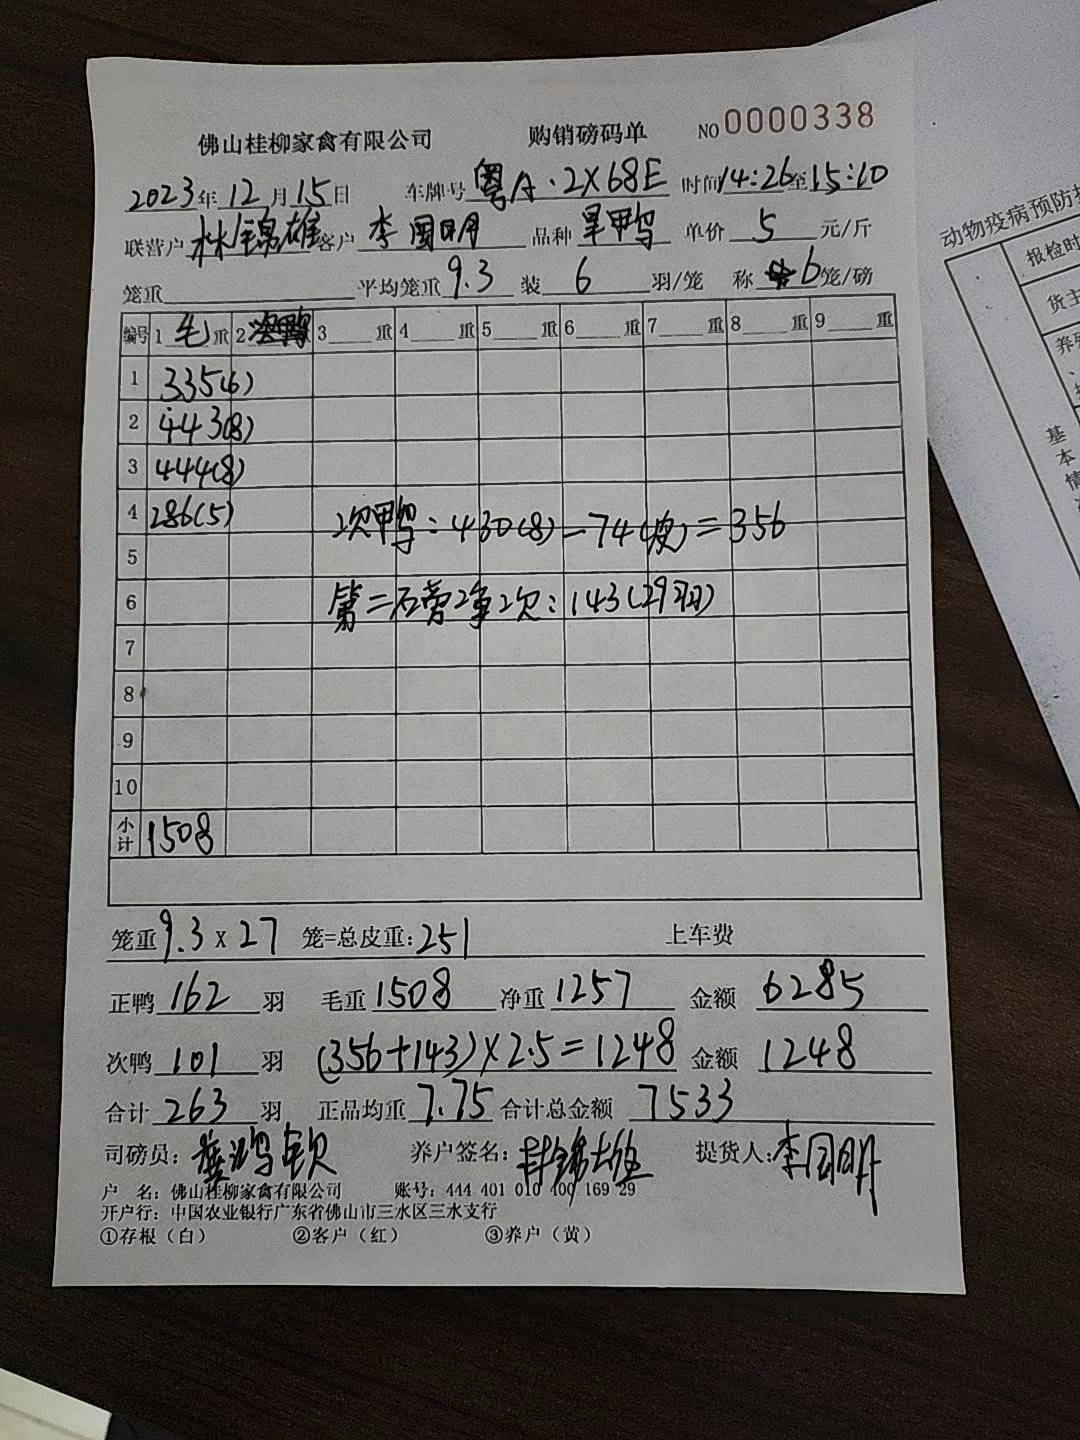 佛山桂柳家禽有限公司 购销磅码单 NO 0000338
2023年12月15日 车牌号 粤A·2X68E 时间14:26至15:10
联营户 林锦雄 客户 李国明 品种 旱鸭 单价 5 元/斤
笼重 平均笼重 9.3 装 6 羽/笼 称 6 笼/磅
编号 1 毛 重 2 次鸭 3 重 4 重 5 重 6 重 7 重 8 重 9 重
1 335(6)
2 443(8)
3 444(8)
4 286(5) 次鸭:430(8)-74(皮)=356
5
6 第二磅净次:143(29羽)
7
8
9
10
小计 1508
笼重 9.3 x 27 笼=总皮重:251 上车费
正鸭 162 羽 毛重 1508 净重 1257 金额 6285
次鸭 101 羽 (356+143)×2.5=1248 金额 1248
合计 263 羽 正品均重 7.75 合计总金额 7533
司磅员: 养户签名:林锦雄 提货人:李国明
户 名:佛山桂柳家禽有限公司 账号:444 401 010 400 169 29
开户行:中国农业银行广东省佛山市三水区三水支行
①存根(白) ②客户(红) ③养户(黄)
动物疫病预防控
报检时
货主
养殖
基本情